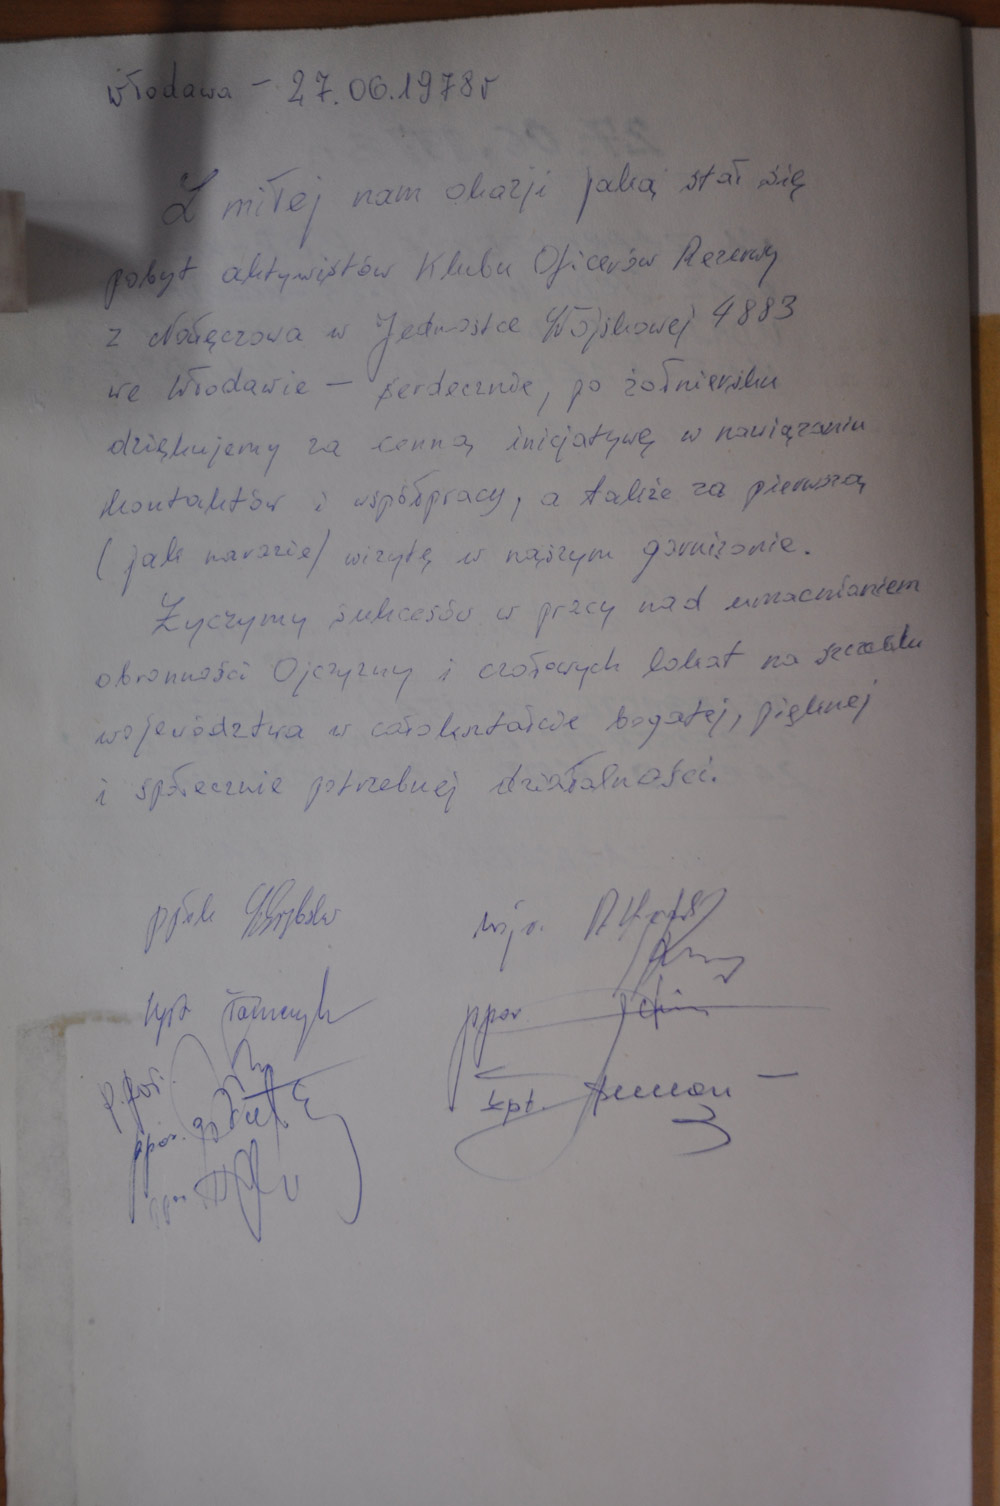 Włodawa - 27.06.1978r
Z miłej nam okazji jaką stał się
pobyt aktywistów Klubu Oficerów Rezerwy
z Nałęczowa w Jednostce Wojskowej 4883
we Włodawie - serdecznie, po żołniersku
dziękujemy za cenną inicjatywę w nawiązaniu
kontaktów i współpracy, a także za pierwszą
(jak narazie) wizytę w naszym garnizonie.
Życzymy sukcesów w pracy nad umacnianiem
obronności Ojczyzny i czołowych lokat na szczeblu
województwa w całokształcie bogatej, pięknej
i społecznie potrzebnej działalności.
ppłk
mjr.
kpt
ppor.
p.por.
kpt.
ppor.
ppor